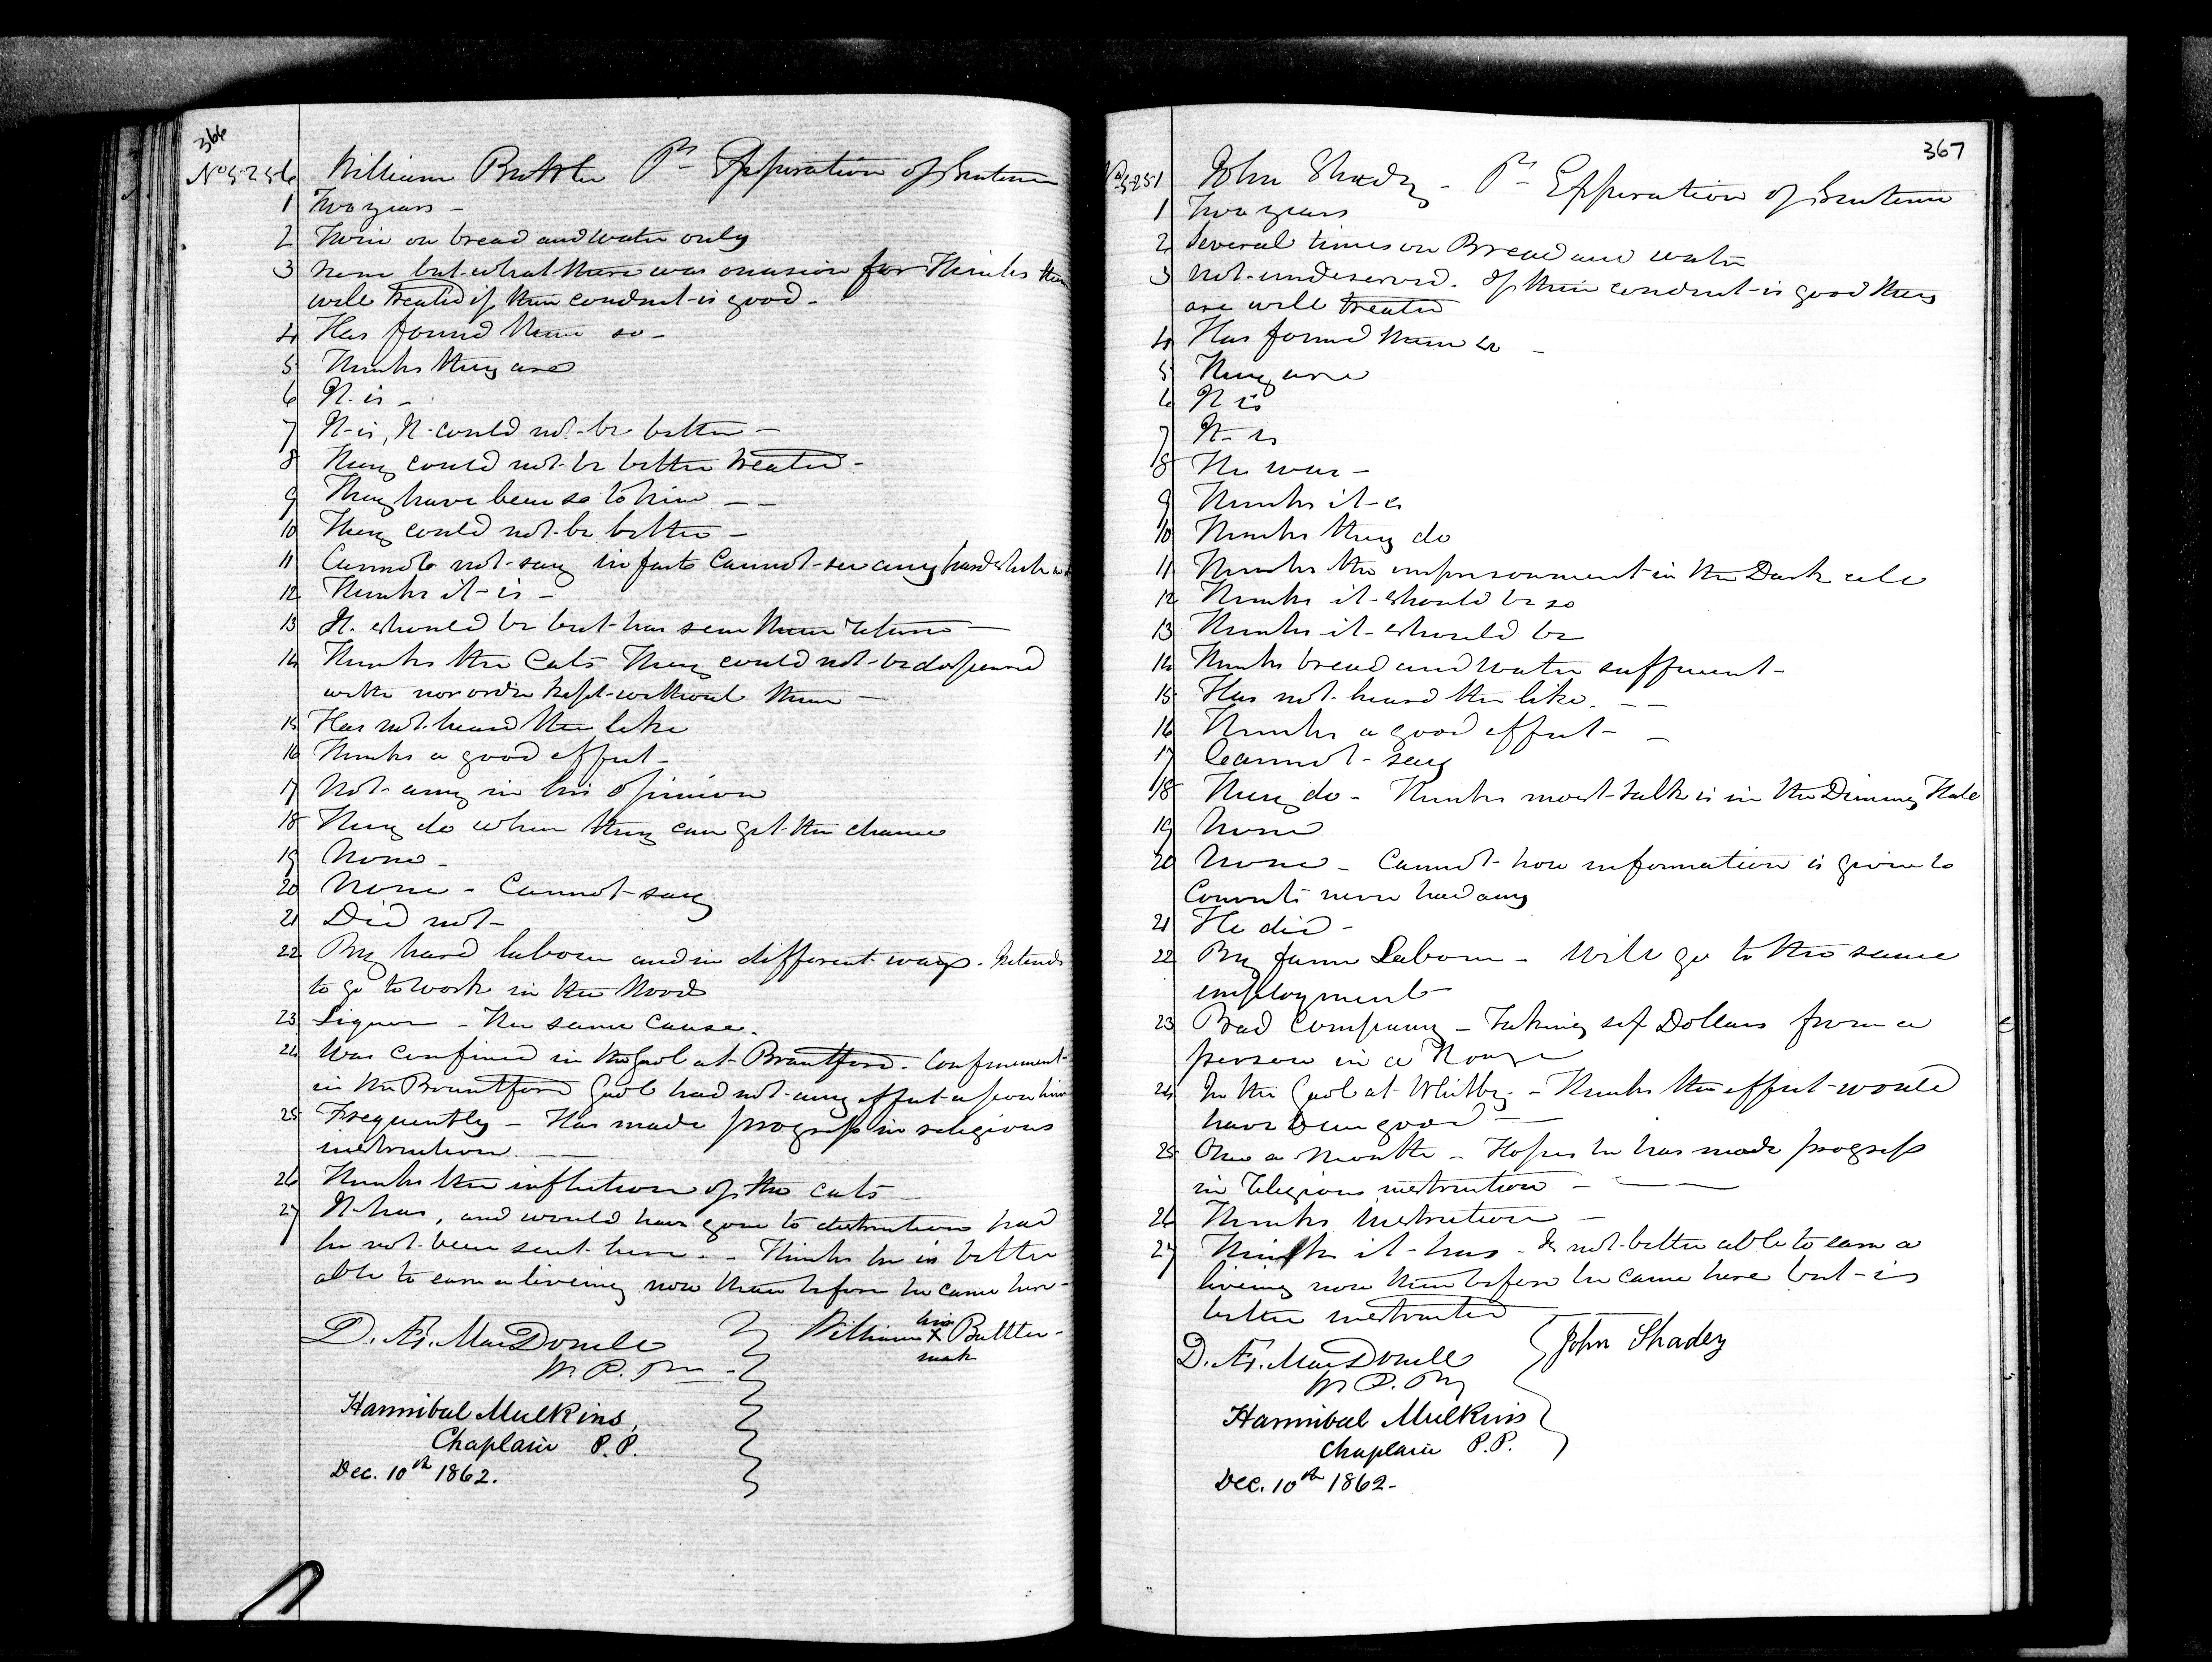 366
No 5256 William Buttler Pr Expiration of Sentence
1 Two years -
2 Twice on bread and water only
3 None but what there was occasion for Thinks them
well treated if their conduct is good -
4 Has found them so -
5 Thinks they are
6 It is -
7 It is, It could not be better -
8 They could not be better treated -
9 They have been so to him - -
10 They could not be better -
11 not say in fact Cannot see any hardship in it
12 Thinks it is -
13 It should be but has seen them return -
14 Thinks the Cats They could not be dispensed
with nor order kept without them -
15 Has not heard the like
16 Thinks a good effect -
17 Not any in his opinion
18 They do when they can get the chance
19 None -
20 None - Cannot say
21 Did not -
22 By hard labour and in different ways - Intends
to go to work in the Woods
23 Liquor - The same cause.
24 Was confined in the Gaol at Brantford. Confinement
in the Brantford Gaol had not any effect upon him
25 Frequently - Has made progress in religious
instruction -
26 Thinks the infliction of the cats -
27 It has, and would have gone to destruction had
he not been sent here. - Thinks he is better
able to earn a liveing now than before he came here -
D. Æ. MacDonell
W. P. Py
William his X mark Buttler -
Hannibal Mulkins,
Chaplain P.P.
Dec. 10th 1862.
367
No 5251 John Shady - Pr Expiration of Sentence
1 Two years
2 Several times on Bread and water
3 Not undeserved. If their conduct is good they
are well treated
4 Has found them so -
5 They are
6 It is
7 It is
8 He was -
9 Thinks it is
10 Thinks they do
11 Thinks the imprisonment in the Dark cell
12 Thinks it should be so
13 Thinks it should be
14 Thinks bread and water sufficient -
15 Has not heard the like. - -
16 Thinks a good effect - -
17 Cannot say
18 They do - Thinks most talk is in the Dinning Hall
19 None
20 None - Cannot how information is given to
Convicts never had any
21 He did -
22 By farm Labour - Will go to the same
employment -
23 Bad Company - Taking six Dollars from a
person in a House
24 In the Gaol at Whitby - Thinks the effect would
have been good -
25 Once a Month - Hopes he has made progress
in religious instruction - -
26 Thinks instruction -
27 Thinks it has - Is not better able to earn a
liveing now than before he came here but is
better instructed
D. Æ. MacDonell
W. P. Py
John Shadey
Hannibal Mulkins
Chaplain P.P.
Dec. 10th 1862.